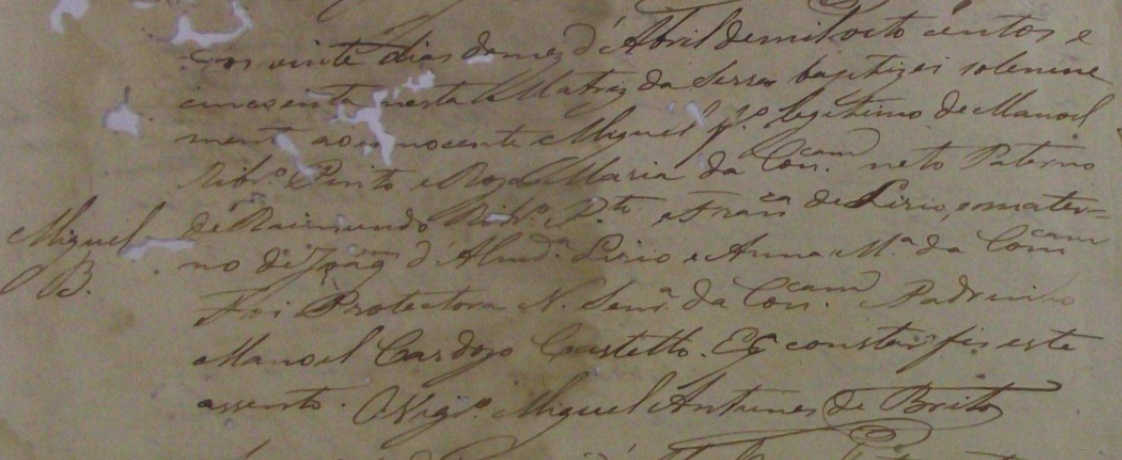 Aos vinte dias do mez d'Abril de mil oito centos e
cincoenta nesta Matriz da Serra baptizei solemne
mente ao innocente Miguel f.º legitimo de Manoel
Ribr.º Pinto e Roza Maria da Con.cam neto Paterno
de Raimundo Ribr.º P.to e Fran.ca de Lirio, e mater-
Miguel
no de Joaq d'Almd.ª Lirio e Anna M.ª da Con.cam
B.
Foi Protectora N. Senr.ª da Con.cam Padrinho
Manoel Cardozo Castello. E q constar fis este
assento. O Vigr.º Miguel Antunes de Brito